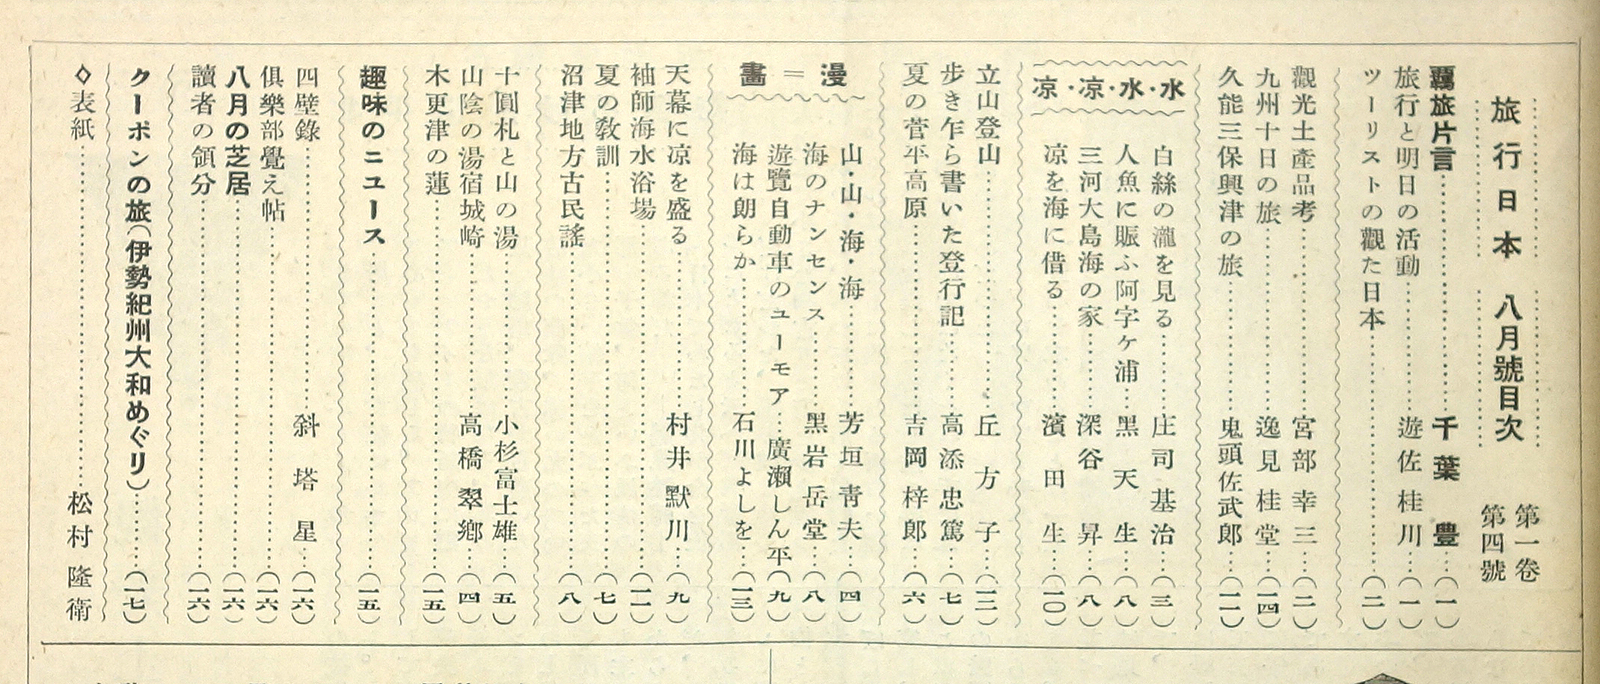 旅行日本 八月號目次
第一卷
第四號
羇旅片言……千葉豊…(一)
旅行と明日の活動……遊佐桂川…(一)
ツーリストの觀た日本……(二)
觀光土產品考……宮部幸三…(二)
九州十日の旅……逸見桂堂…(一四)
久能三保興津の旅……鬼頭佐武郎…(一一)
水・水・凉・凉
白絲の瀧を見る……庄司基治…(三)
人魚に賑ふ阿字ケ浦……黑天生…(八)
三河大島海の家……深谷昇…(八)
凉を海に借る……濱田生…(一〇)
立山登山……丘方子…(一二)
歩き乍ら書いた登行記……高添忠篤…(七)
夏の菅平高原……吉岡梓郎…(六)
漫=畵
山・山・海・海……芳垣靑夫…(四)
海のナンセンス……黑岩岳堂…(八)
遊覽自動車のユーモア…廣瀨しん平(九)
海は朗らか……石川よしを…(一三)
天幕に凉を盛る……村井默川…(九)
袖師海水浴場……(一一)
夏の敎訓……(七)
沼津地方古民謠……(八)
十圓札と山の湯……小杉富士雄…(五)
山陰の湯宿城崎……高橋翠鄕…(四)
木更津の蓮……(一五)
趣味のニュース……(一五)
四壁錄……斜塔星…(一六)
俱樂部覺え帖……(一六)
八月の芝居……(一六)
讀者の領分……(一六)
クーポンの旅(伊勢紀州大和めぐり)……(一七)
◇表紙……松村隆衛